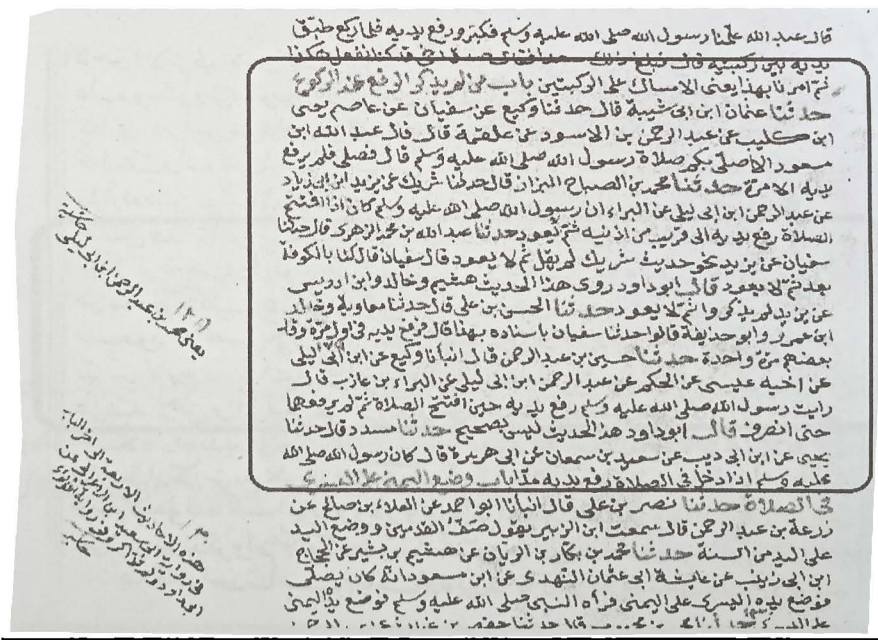 قال عبد الله علمنا رسول الله صلى الله عليه وسلم فكبر ورفع يديه فلما ركع طبق
يديه بين ركبتيه قال فبلغ ذلك
ثم امرنا بهذا يعنى الامساك على الركبتين باب من لم يذكر الرفع عند الركوع
حدثنا عثمان ابن ابى شيبة قال حدثنا وكيع عن سفيان عن عاصم يعنى
ابن كليب عن عبد الرحمن بن الاسود عن علقمة قال قال عبد الله ابن
مسعود الا اصلى بكم صلاة رسول الله صلى الله عليه وسلم قال فصلى فلم يرفع
يديه الا مرة حدثنا محمد بن الصباح البزاز قال حدثنا شريك عن يزيد ابن ابى زياد
عن عبد الرحمن ابن ابى ليلى عن البراء ان رسول الله صلى الله عليه وسلم كان اذا افتتح
الصلاة رفع يديه الى قريب من اذنيه ثم لا يعود حدثنا عبد الله بن محمد الزهرى قال حدثنا
سفيان عن يزيد نحو حديث شريك لم يقل ثم لا يعود قال سفيان قال لنا بالكوفة
بعد ثم لا يعود قال ابو داود روى هذا الحديث هشيم وخالد وابن ادريس
عن يزيد لم يذكروا ثم لا يعود حدثنا الحسن بن على قال حدثنا معاوية وخالد
ابن عمرو وابو حذيفة قالوا حدثنا سفيان باسناده بهذا قال فرفع يديه فى اول مرة وقال
بعضهم مرة واحدة حدثنا حسين بن عبد الرحمن قال انبأنا وكيع عن ابن ابى ليلى
عن اخيه عيسى عن الحكم عن عبد الرحمن ابن ابى ليلى عن البراء بن عازب قال
رايت رسول الله صلى الله عليه وسلم رفع يديه حين افتتح الصلاة ثم لم يرفعهما
حتى انصرف قال ابو داود هذا الحديث ليس بصحيح حدثنا مسدد قال حدثنا
يحيى عن ابن ابى ذيب عن سعيد بن سمعان عن ابى هريرة قال كان رسول الله صلى الله
عليه وسلم اذا دخل فى الصلاة رفع يديه مدا باب وضع اليمنى على اليسرى
فى الصلاة حدثنا نصر بن على قال انبأنا ابو احمد عن العلاء بن صالح عن
زرعة بن عبد الرحمن قال سمعت ابن الزبير يقول صف القدمين ووضع اليد
على اليد من السنة حدثنا محمد بن بكار بن الريان عن هشيم بن بشير عن الحجاج
ابن ابى زينب عن ابى عثمان النهدى عن ابن مسعود انه كان يصلى
فوضع يده اليسرى على اليمنى فرآه النبى صلى الله عليه وسلم فوضع يده اليمنى
يعنى محمد بن عبد الرحمن ابن ابى ليلى
هذه الاحاديث الاربعة الى اخر الباب
فى رواية ابى سعيد ابن الاعرابى عن
ابى داود